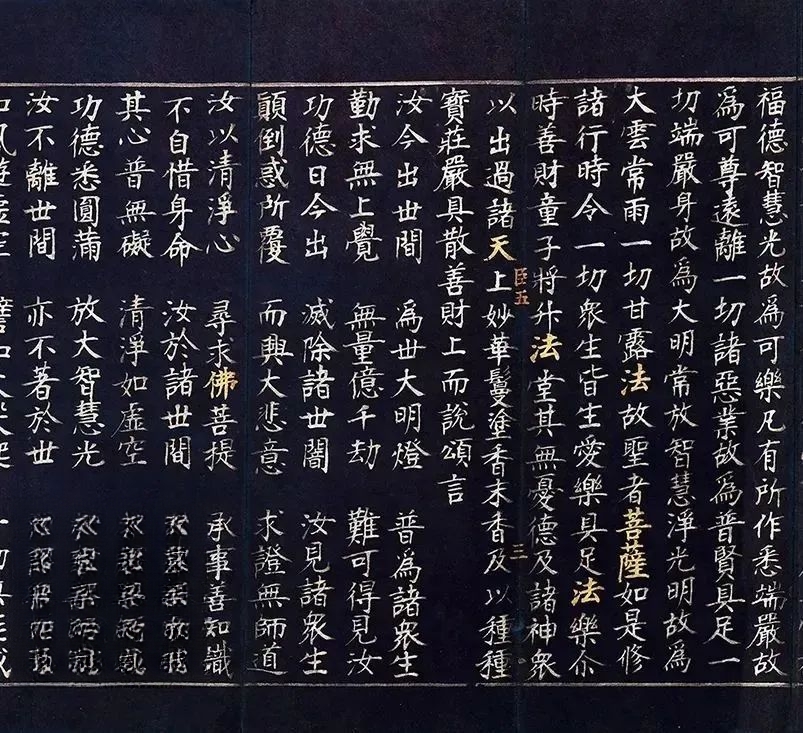 福德智慧光故為可樂凡有所作悉端嚴故
為可尊遠離一切諸惡業故為普賢具足一
切端嚴身故為大明常放智慧淨光明故為
大雲常雨一切甘露法故聖者菩薩如是修
諸行時令一切眾生皆生愛樂具足法樂尒
時善財童子將升法堂其無憂德及諸神眾
臣五 三
以出過諸天上妙華鬘塗香末香及以種種
寶莊嚴具散善財上而說頌言
汝今出世間 為世大明燈 普為諸眾生
勤求無上覺 無量億千劫 難可得見汝
功德日今出 滅除諸世闇 汝見諸眾生
顛倒惑所覆 而興大悲意 求證無師道
汝以清淨心 尋求佛菩提 承事善知識
不自惜身命 汝於諸世間
其心普無礙 清淨如虛空
功德悉圓滿 放大智慧光
汝不離世間 亦不著於世